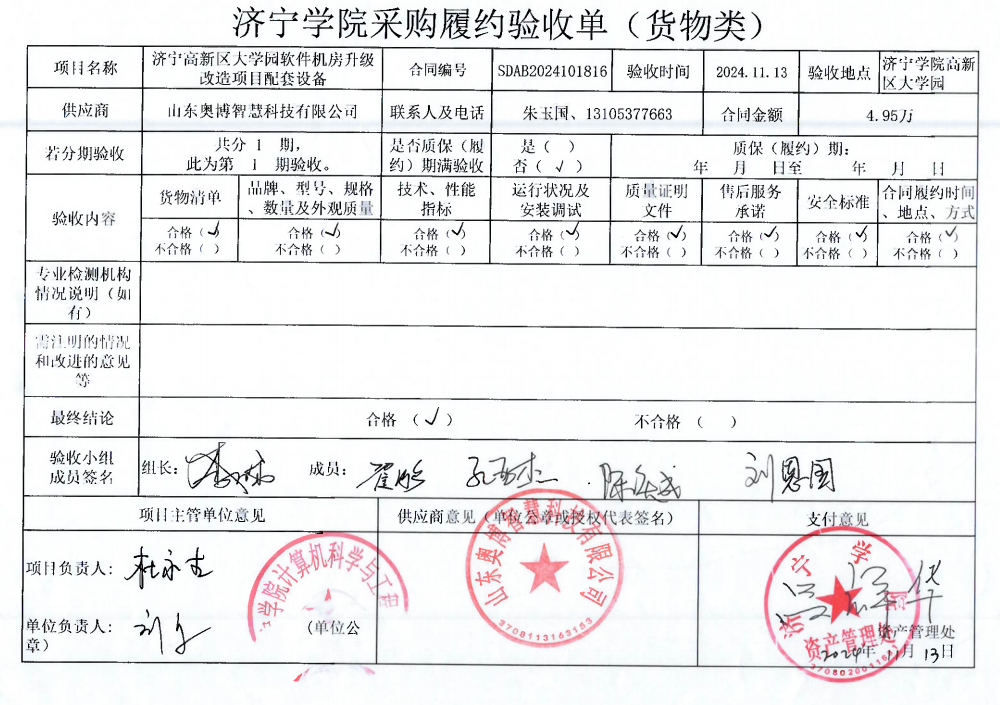 济宁学院采购履约验收单（货物类）
项目名称 济宁高新区大学园软件机房升级改造项目配套设备 合同编号 SDAB2024101816 验收时间 2024.11.13 验收地点 济宁学院高新区大学园
供应商 山东奥博智慧科技有限公司 联系人及电话 朱玉国、13105377663 合同金额 4.95万
若分期验收 共分 1 期，此为第 1 期验收。 是否质保（履约）期满验收 是（ ） 否（√） 质保（履约）期： 年 月 日至 年 月 日
验收内容 货物清单 品牌、型号、规格、数量及外观质量 技术、性能指标 运行状况及安装调试 质量证明文件 售后服务承诺 安全标准 合同履约时间、地点、方式
合格（√） 合格（√） 合格（√） 合格（√） 合格（√） 合格（√） 合格（√） 合格（√）
不合格（ ） 不合格（ ） 不合格（ ） 不合格（ ） 不合格（ ） 不合格（ ） 不合格（ ） 不合格（ ）
专业检测机构情况说明（如有）
需注明的情况和改进的意见等
最终结论 合格（√） 不合格（ ）
验收小组成员签名 组长： 成员： 刘恩国
项目主管单位意见 供应商意见（单位公章或授权代表签名） 支付意见
项目负责人： 杜永吉
单位负责人： （单位公章）
学院计算机科学与工程
山东奥博智慧科技有限公司
3708113163153
济宁学院
资产管理处
资产管理处
2024年11月13日